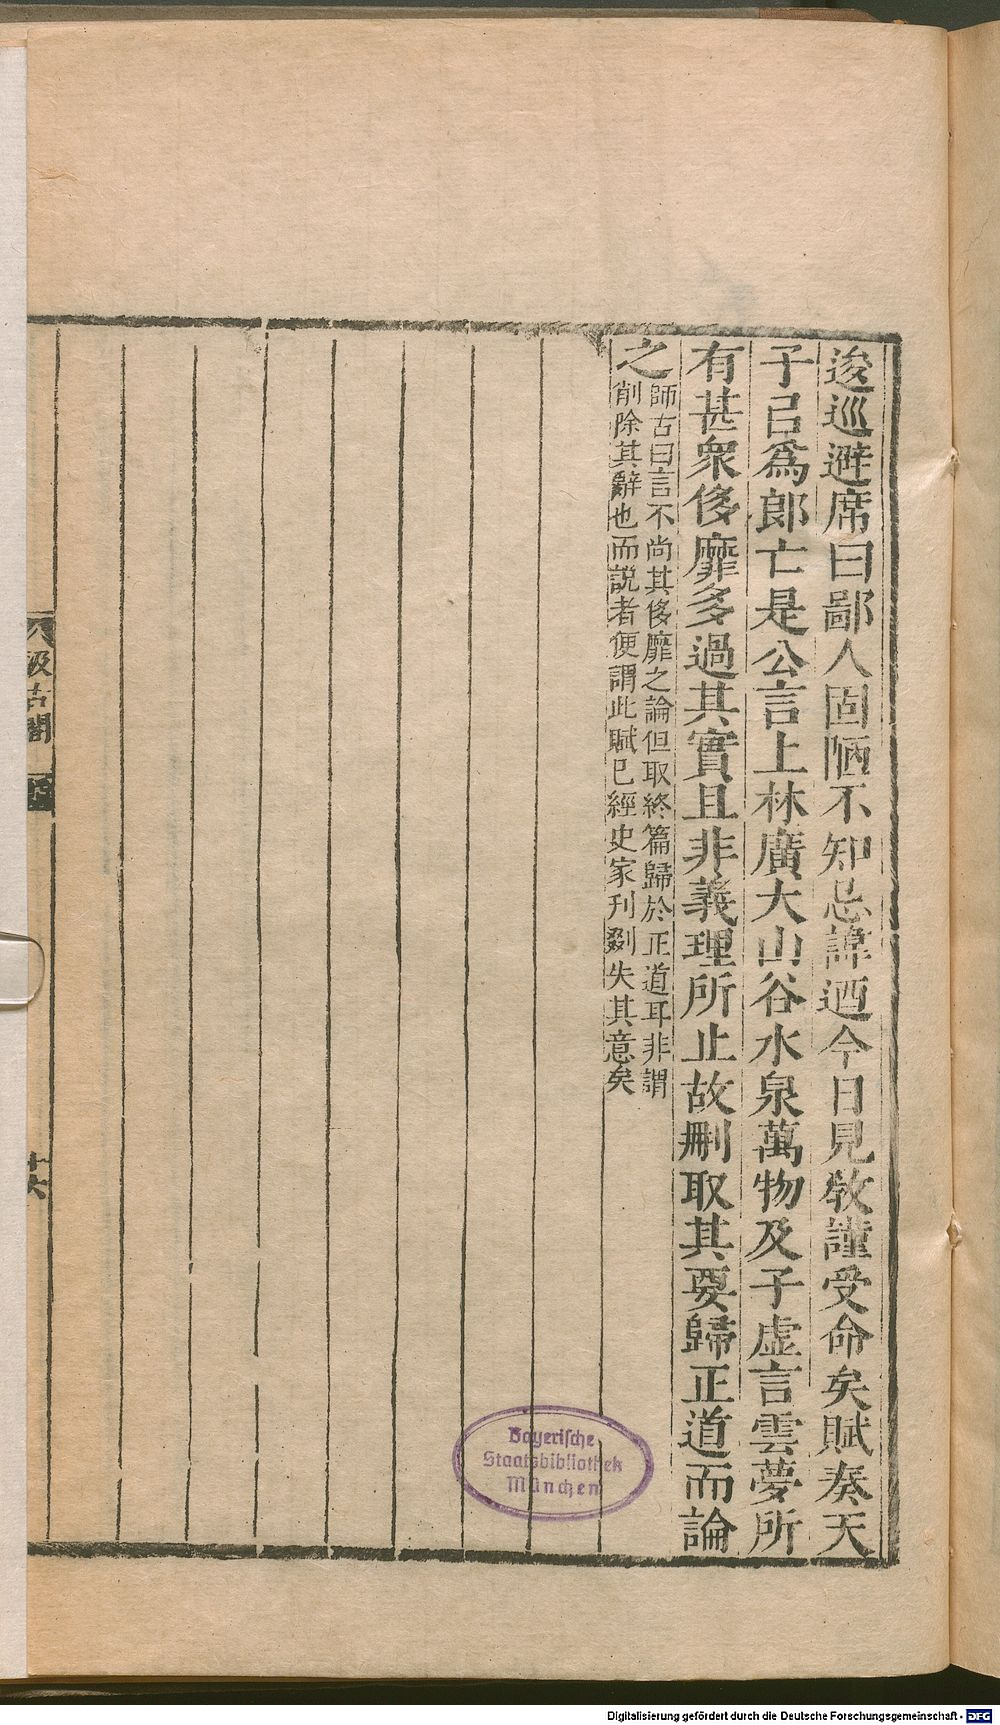 逡巡避席曰鄙人固陋不知忌諱迺今日見教謹受命矣賦奏天
子㠯為郎亡是公言上林廣大山谷水泉萬物及子虛言雲夢所
有甚衆侈靡多過其實且非義理所止故刪取其要歸正道而論
之
師古曰言不尚其侈靡之論但取終篇歸於正道耳非謂
削除其辭也而説者便謂此賦已經史家刋剟失其意矣
汲古閣
十六
Bayerische
Staatsbibliothek
München
Digitalisierung gefördert durch die Deutsche Forschungsgemeinschaft - DFG